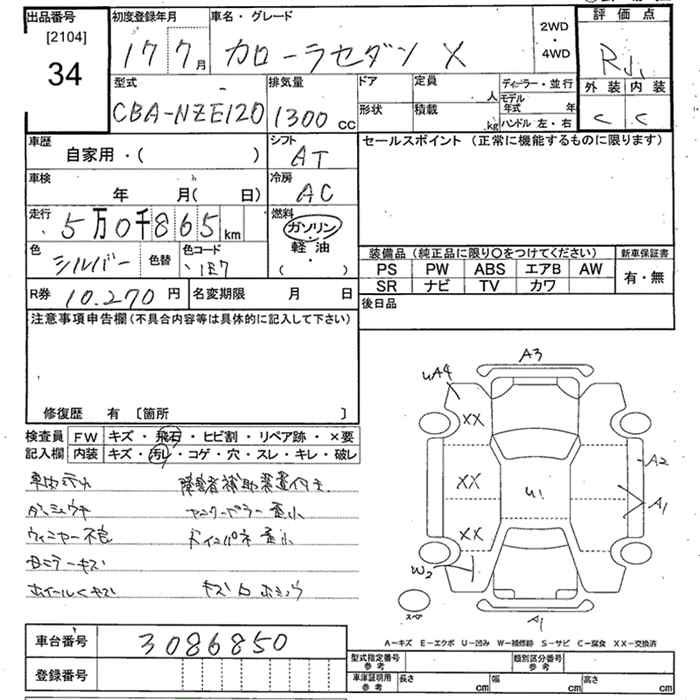 出品番号 初度登録年月 車名・グレード 2WD ・ 4WD 評価点
[2104]
34 17 7月 カローラセダン X R
型式 排気量 ドア 定員 人 ディーラー・並行 外装 内装
CBA-NZE120 1300cc 形状 積載 kg モデル年式 年 C C
ハンドル 左・右
車歴 自家用・( ) シフト AT セールスポイント (正常に機能するものに限ります)
車検 年 月(日) 冷房 AC
走行 5万0千865km 燃料 ガソリン・軽油
( )
色 シルバー 色替 色コード 1E7
装備品 (純正品に限り〇をつけてください) 新車保証書
PS PW ABS エアB AW 有・無
SR ナビ TV カワ
R券 10.270円 名変期限 月 日 後日品
注意事項申告欄 (不具合内容等は具体的に記入して下さい)
修復歴 有 [箇所 ]
検査員 FW キズ・飛石・ヒビ割・リペア跡・×要
記入欄 内装 キズ・汚レ・コゲ・穴・スレ・キレ・破レ
障害者補助装置付き
ウィニャー不良
ホイールキズ
A3
uA4
XX
A2
XX U1 A1
XX
W2
スペア A1
A-キズ E-エクボ U-凹み W-補修跡 S-サビ C-腐食 XX-交換済
車台番号 3086850
登録番号
型式指定番号 参考 類別区分番号 参考
車庫証明用 参考 長さ cm 幅 cm 高さ cm